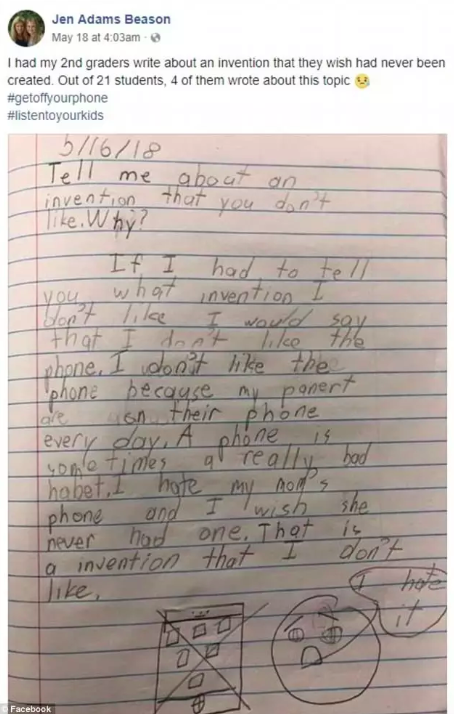 Jen Adams Beason
May 18 at 4:03am
I had my 2nd graders write about an invention that they wish had never been
created. Out of 21 students, 4 of them wrote about this topic
#getoffyourphone
#listentoyourkids
5/16/18
Tell me about an
invention that you don't
like. Why?
If I had to tell
you what invention I
don't like I would say
that I don't like the
phone. I don't like the
phone because my panert
are on their phone
every day. A phone is
sometimes a really bad
habet. I hate my mom's
phone and I wish she
never had one. That is
a invention that I don't
like.
I hate
it
© Facebook